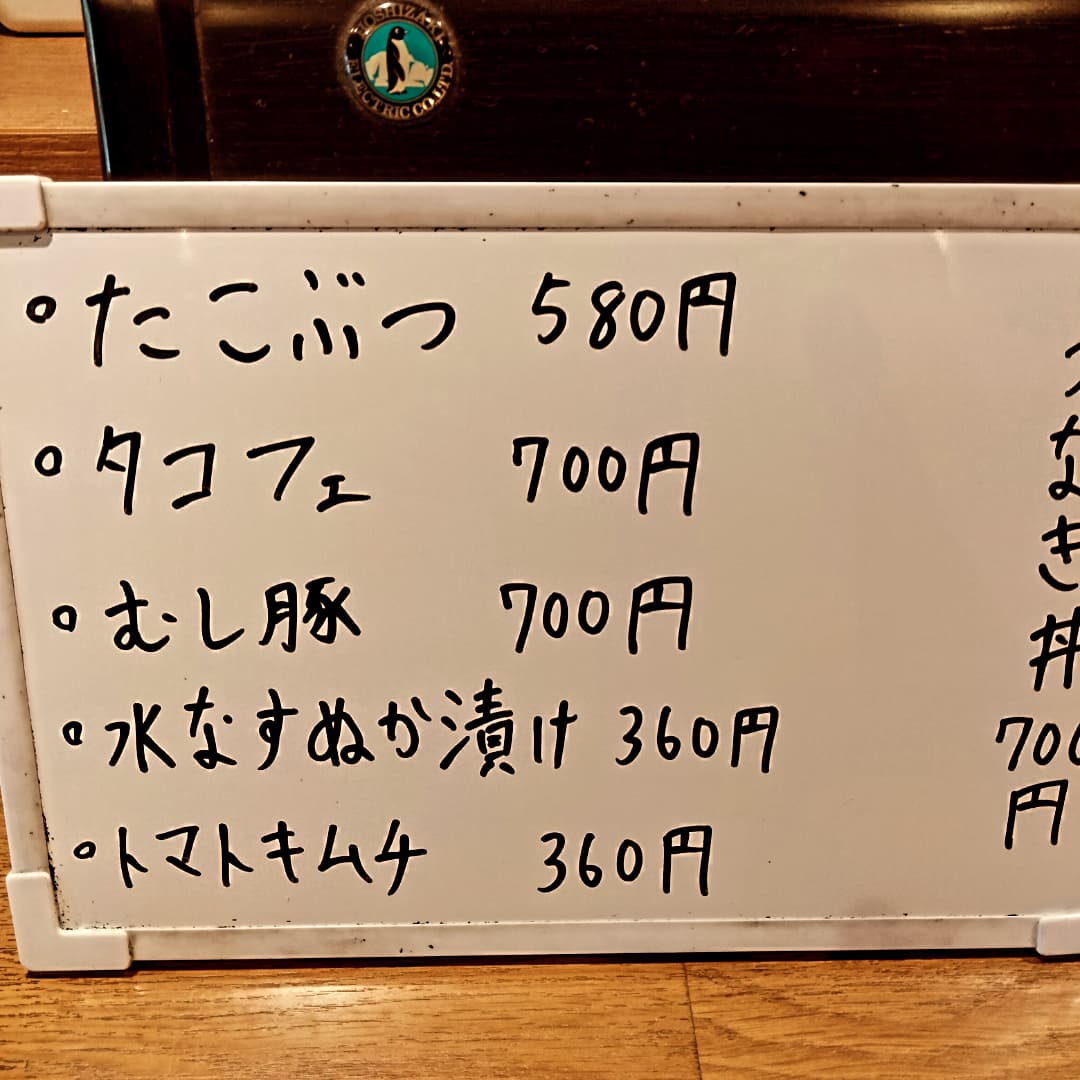 HOSHIZAKI ELECTRIC CO.LTD.
たこぶつ 580円
タコフェ 700円
むし豚 700円
水なすぬか漬け 360円
トマトキムチ 360円
なぎ丼
700
円